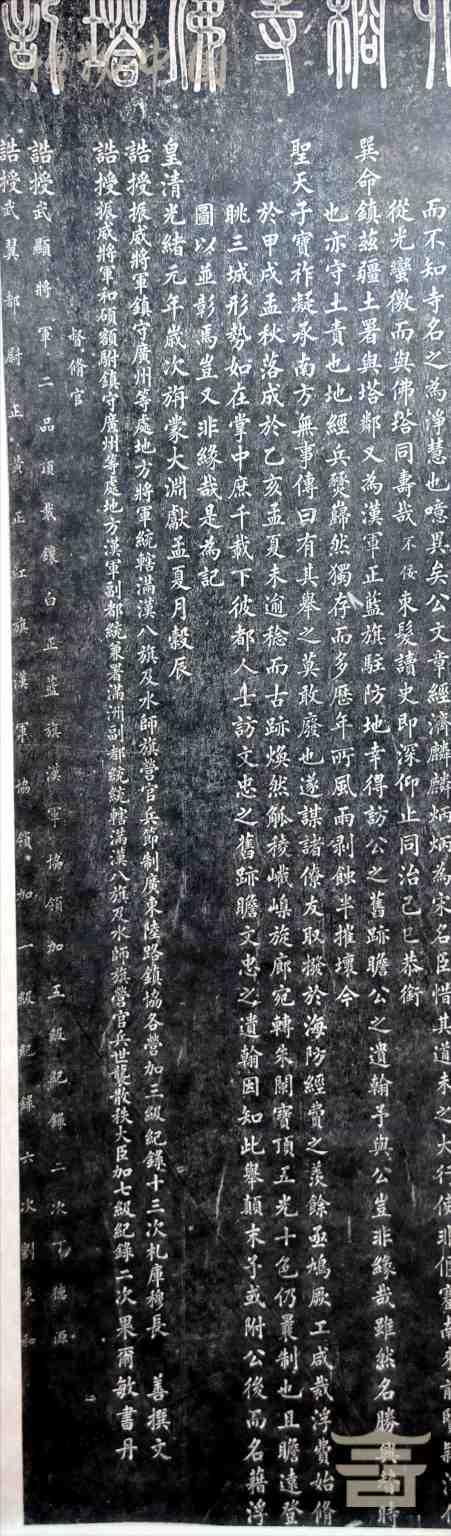 六榕寺佛塔記
而不知寺名之為淨慧也噫異矣公文章經濟麟麟炳炳為宋名臣惜其道未之大行使非偃蹇南來前賢
從光蠻徼而與佛塔同壽哉不佞束髮讀史即深仰止同治己巳恭銜
巽命鎮茲疆土署與塔鄰又為漢軍正藍旗駐防地幸得訪公之舊跡瞻公之遺翰予與公豈非緣哉雖然名勝興替時
也亦守土責也地經兵燹巋然獨存而多歷年所風雨剥蝕半摧壞今
聖天子寶祚凝承南方無事傳曰有其舉之莫敢廢也遂謀諸僚友取撥於海防經費之羡餘亟鳩厥工咸裁浮費始脩
於甲戌孟秋落成於乙亥孟夏未逾稔而古跡煥然觚稜峨嵲旋廊宛轉朱闌寶頂五光十色仍曩制也且瞻遠登
眺三城形勢如在掌中庶千載下彼都人士訪文忠之舊跡瞻文忠之遺翰因知此舉顛末予或附公後而名藉浮
圖以並彰焉豈又非緣哉是為記
皇清光緒元年歲次旃蒙大淵獻孟夏月穀辰
誥授振威將軍鎮守廣州等處地方將軍統轄滿漢八旗及水師旗營官兵節制廣東陸路鎮協各營加三級紀錄十三次札庫穆長 善撰文
誥授振威將軍和碩額駙鎮守廣州等處地方漢軍副都統兼署滿洲副都統統轄滿漢八旗及水師旗營官兵世襲散秩大臣加七級紀錄二次果爾敏書丹
督脩官
誥授武顯將軍二品頂戴鑲白正藍旗漢軍協領加五級紀錄二次丁德源
誥授武翼都尉正黃正紅旗漢軍協領加一級紀錄六次劉秉和